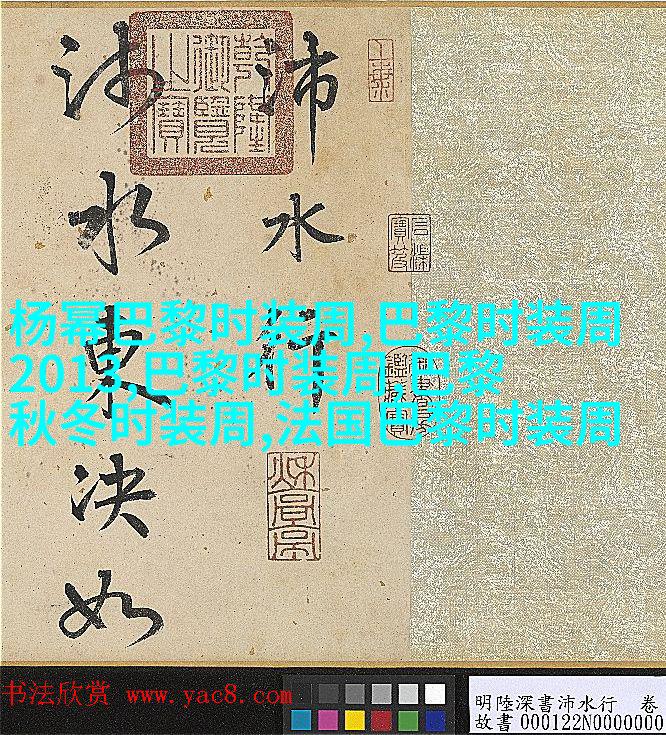 沛水行
沛水東決如
乾隆御覽之寶
杨幂巴黎时装周,巴黎时装周
2013,巴黎时装周,巴黎
秋冬时装周,法国巴黎时装周
书法欣赏 www.yac8.com
明陸深書沛水行 卷
故書000122N0000000